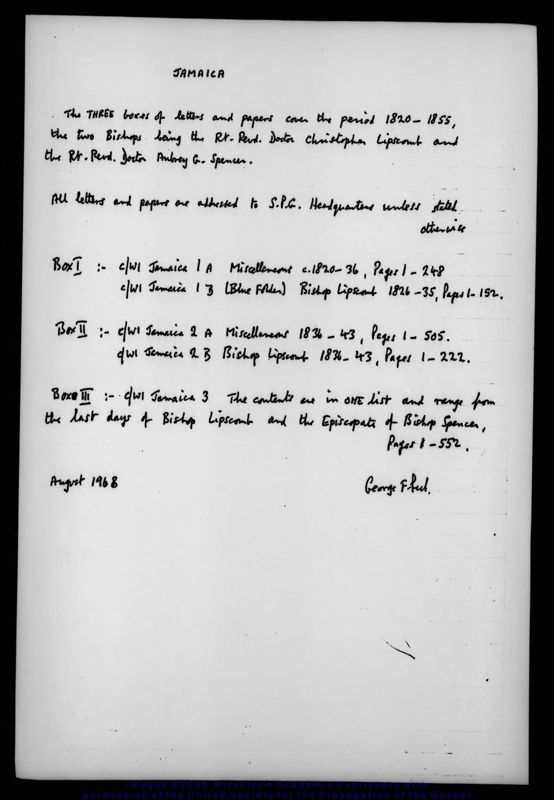 JAMAICA
The THREE boxes of letters and papers cover the period 1820 – 1855,
the two Bishops being the Rt. Revd. Doctor Christopher Lipscomb and
the Rt. Revd. Doctor Aubrey G. Spencer.
All letters and papers are addressed to S.P.G. Headquarters unless stated
otherwise
Box I :- C/WI Jamaica 1 A Miscellaneous c.1820-36, Pages 1 - 248
C/WI Jamaica 1 B (Blue Folder) Bishop Lipscomb 1826-35, Pages 1-152.
Box II :- C/WI Jamaica 2 A Miscellaneous 1836-43, Pages 1 - 505.
C/WI Jamaica 2 B Bishop Lipscomb 1836-43, Pages 1-222.
Box III :- C/WI Jamaica 3 The contents are in ONE list and range from
the last days of Bishop Lipscomb and the Episcopate of Bishop Spencer,
Pages 1-552.
August 1968 George F.
images ©2009 Microform Academic Publishers with
permission of the United Society for the Propagation of the Gospel